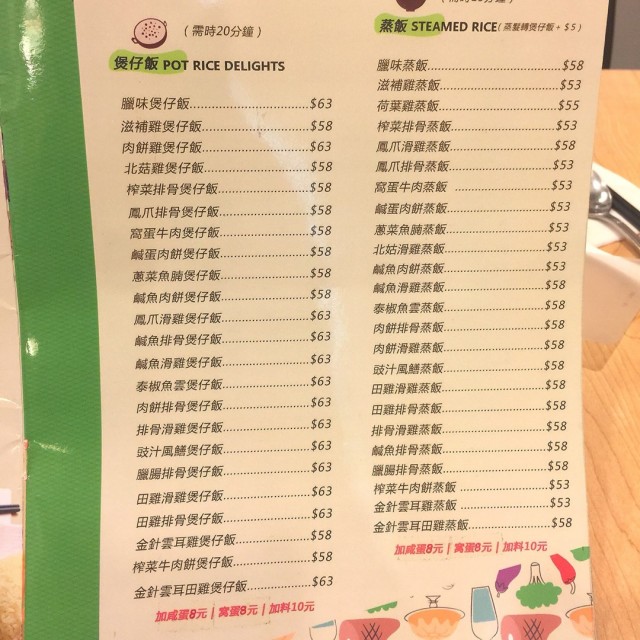 (需時20分鐘)
煲仔飯 POT RICE DELIGHTS
臘味煲仔飯 $63
滋補雞煲仔飯 $58
肉餅雞煲仔飯 $63
北菇雞煲仔飯 $58
榨菜排骨煲仔飯 $58
鳳爪排骨煲仔飯 $58
窩蛋牛肉煲仔飯 $58
鹹蛋肉餅煲仔飯 $58
蔥菜魚腩煲仔飯 $58
鹹魚肉餅煲仔飯 $58
鳳爪滑雞煲仔飯 $63
鹹魚排骨煲仔飯 $63
鹹魚滑雞煲仔飯 $63
泰椒魚雲煲仔飯 $63
肉餅排骨煲仔飯 $63
排骨滑雞煲仔飯 $63
豉汁風鱔煲仔飯 $63
臘腸排骨煲仔飯 $63
田雞滑雞煲仔飯 $63
田雞排骨煲仔飯 $63
金針雲耳雞煲仔飯 $58
榨菜牛肉餅煲仔飯 $58
金針雲耳田雞煲仔飯 $63
加咸蛋8元 | 窩蛋8元 | 加料10元
蒸飯 STEAMED RICE(蒸飯轉煲仔飯+$5)
臘味蒸飯 $58
滋補雞蒸飯 $53
荷葉雞蒸飯 $55
榨菜排骨蒸飯 $53
鳳爪滑雞蒸飯 $58
鳳爪排骨蒸飯 $53
窩蛋牛肉蒸飯 $53
鹹蛋肉餅蒸飯 $53
蔥菜魚腩蒸飯 $53
北菇滑雞蒸飯 $53
鹹魚肉餅蒸飯 $53
鹹魚滑雞蒸飯 $58
泰椒魚雲蒸飯 $58
肉餅排骨蒸飯 $58
肉餅滑雞蒸飯 $58
豉汁風鱔蒸飯 $58
田雞滑雞蒸飯 $58
田雞排骨蒸飯 $58
排骨滑雞蒸飯 $58
鹹魚排骨蒸飯 $58
臘腸排骨蒸飯 $58
榨菜牛肉餅蒸飯 $53
金針雲耳雞蒸飯 $53
金針雲耳田雞蒸飯 $58
加咸蛋8元 | 窩蛋8元 | 加料10元